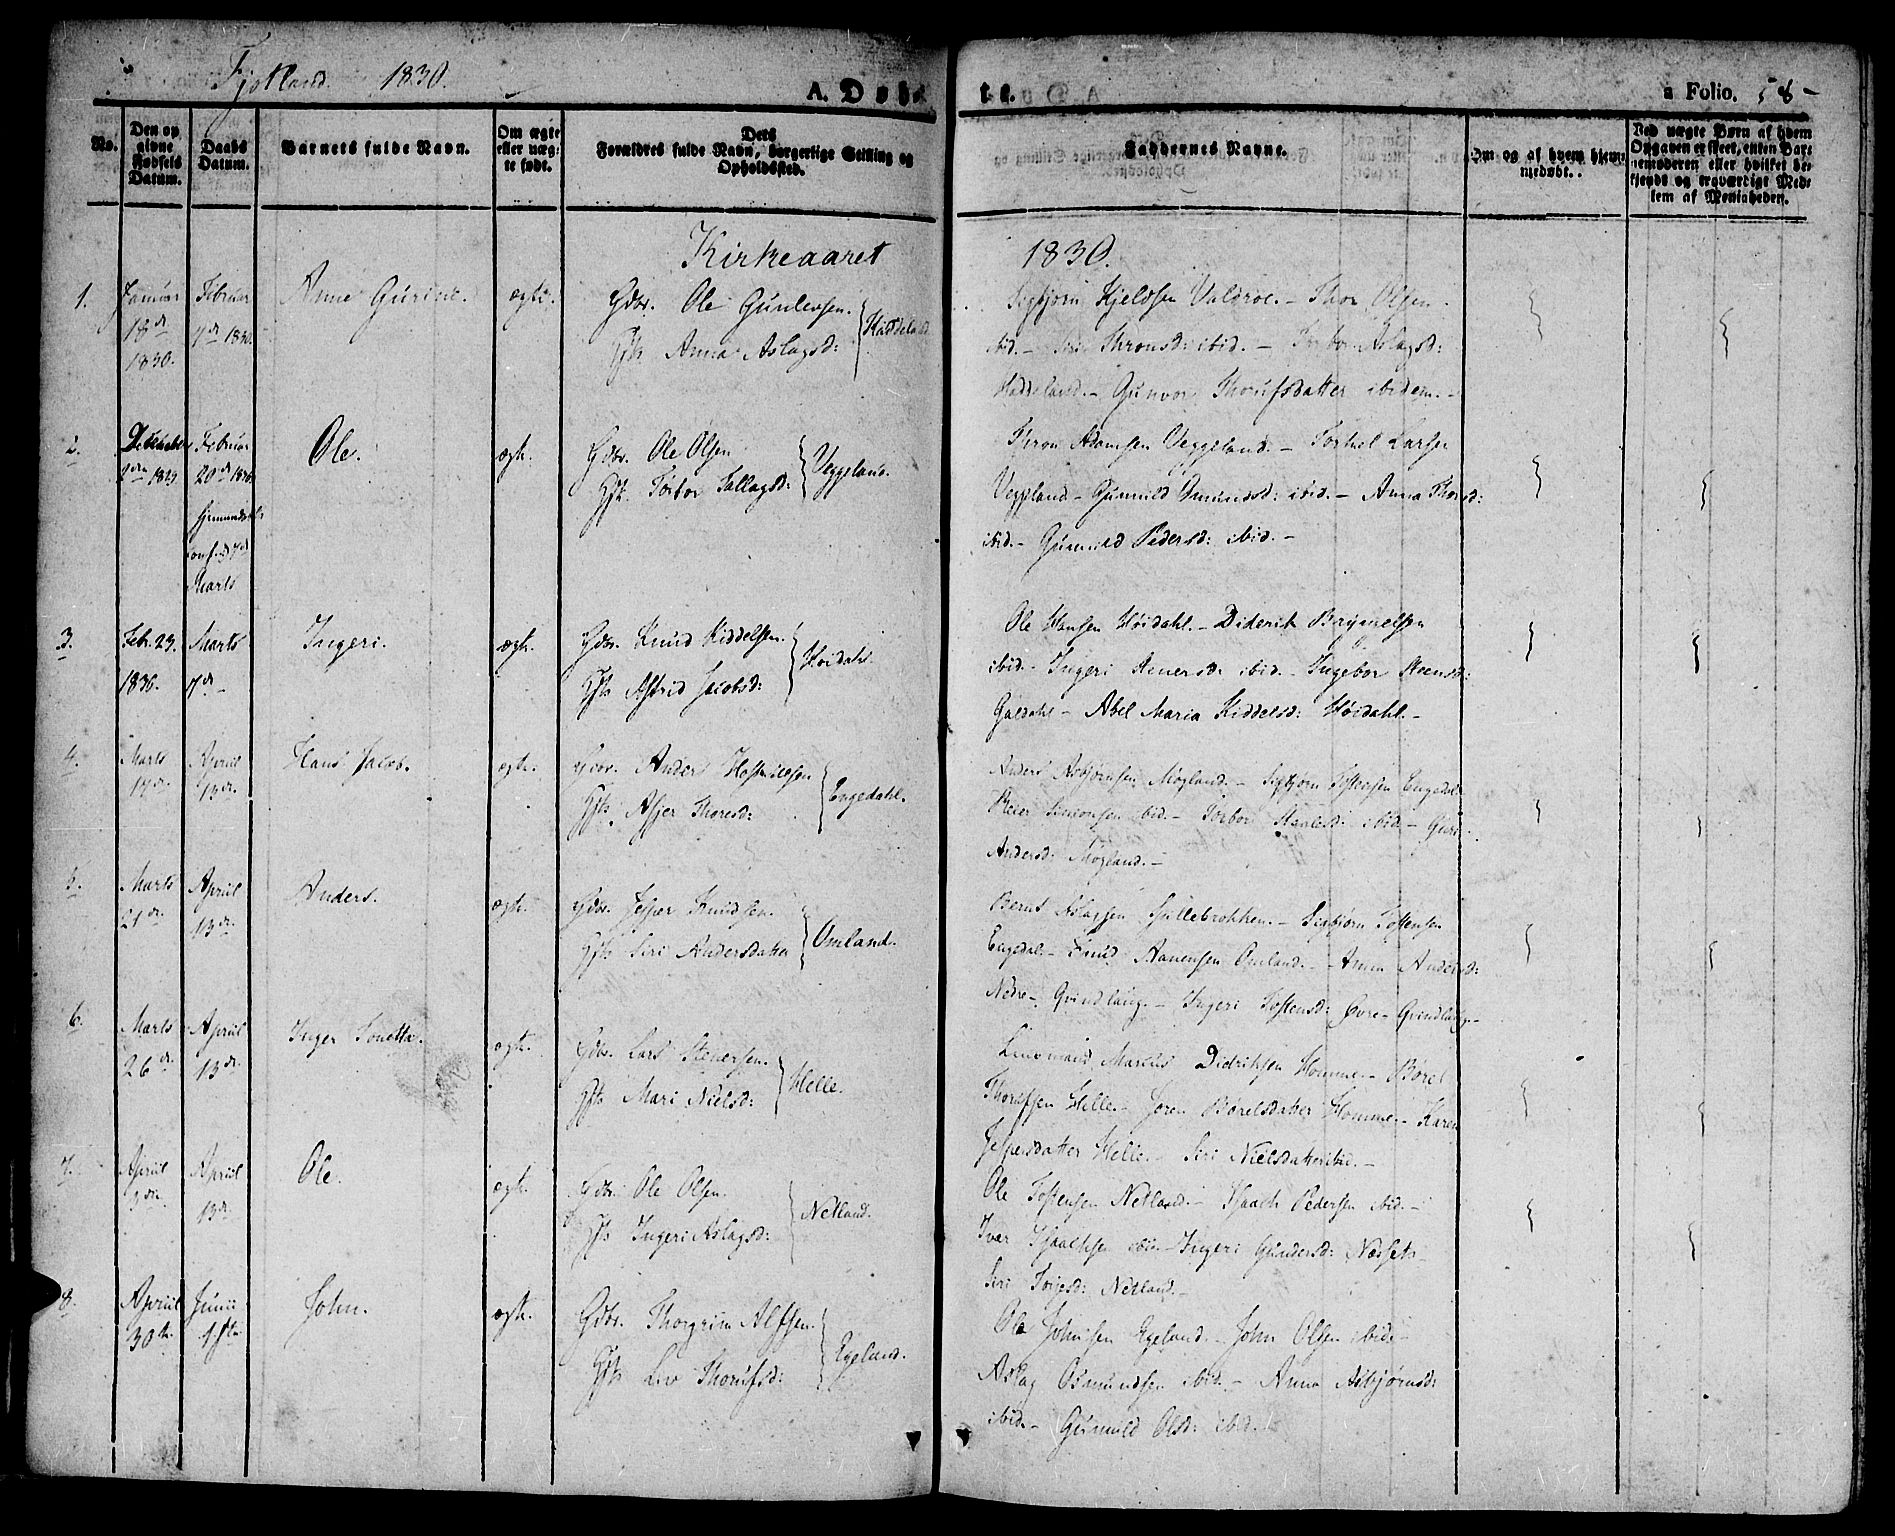 Fjotland 1830.
A. Døbte.
a Folio. 58-
No.
Den opgivne Fødsels Datum.
Daabs Datum.
Barnets fulde Navn.
Om ægte eller uægte født.
Dets Forældres fulde Navn, borgerlige Stilling og Opholdssted.
Faddernes Navne.
Om og af hvem hjemmedøbt.
Ved uægte Børn af hvem Opgaven er skeet, enten Barnemoderen eller hvilket bekjendt og troværdigt Medlem af Menigheden.
Kirkeaaret 1830.
1. Januar 18de 1830. Februar 7de 1830. Anne Gurine. ægte. Gdbr. Ole Gunlevsen.
Anna Aslagsd: Haddeland
Sigbjørn Kjeldsen Valdroe.- Thor Olsen
ibid.- Siri Thronsd: ibid.- Torbor Aslagsd:
Haddeland.- Gunvor Thorufsdatter ibidem.-
2. December 1829. Februar 20de 1830. Ole. ægte. Gdbr. Ole Olsen
Torbor Tallagsd: Veggeland.
hjemmedøbt conf. d 7de Marts
Thron Adamsen Veggeland.- Torkel Larsen
Veggeland- Gunnild Omundsd: ibid.- Anna Thorsd:
ibid.- Gunnild Pedersd: ibid.-
3. Febr. 23. 1830. Marts 7de- Ingeri. ægte. Gdbr. Knud Kiddelsen.
Astrid Jacobsd: Høidahl.
Ole Hansen Høidahl.- Diderik Brynnelsen
ibid.- Ingeri Stenersd: ibid.- Ingebor Steensd:
Galdahl- Abel Maria Kiddelsd: Høidahl.-
4. Marts April 13de. Hans Jacob. ægte. Gdbr. Anders
Asjer Thoresd: Engedahl.
Anders Asbjørnsen Møgland.- Sigbjørn Tostensen Engedal
Reier Simonsen ibid.- Torbor ibid.- Guri
Andersd: Møgland.-
5. Marts 21de. April 13de. Anders. ægte. Gdbr. Jesper Knudsen.
Siri Andersdatter Omland.
Bernt Aslagsen- Sigbjørn Tostensen
Engedal.- Knud Aanensen Omland.- Anna Andersd:
Nedre- Qvindlaug.- Ingeri Tostensd: Øvre- Qvindlaug-
6. Marts 26de. April 13de. Inger Tonetta. ægte. Gdbr. Lars Stenersen.
Mari Nielsd: Helle.
Marcus Didriksen Homme.- Børel
Thorufsen Helle.- Børelsdatter Homme.- Karen
Jespersdatter Helle.- Siri Nielsdatter ibid.-
7. April April 13de. Ole. ægte. Gdbr. Ole Olsen.
Ingeri Aslagsd: Netland.
Ole Tostensen Netland.- Isaach Pedersen ibid.-
Ivar Isaachsen ibid.- Ingeri Gundersd: Næsset-
Siri Torjesd: Netland.-
8. April 30te. Junii 1ste John. ægte. Gdbr. Thorgrim Alfsen.
Liv Thorufsd: Egeland.
Ole Johnsen Egeland.- John Olsen ibid.-
Aslag Osmundsen ibid.- Anna Asbjørnsd:
ibid.- Gunnild Olsd: ibid.